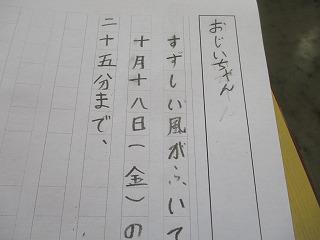 おじいちゃん
すずしい風がふいて
十月十八日(金)の
二十五分まで、